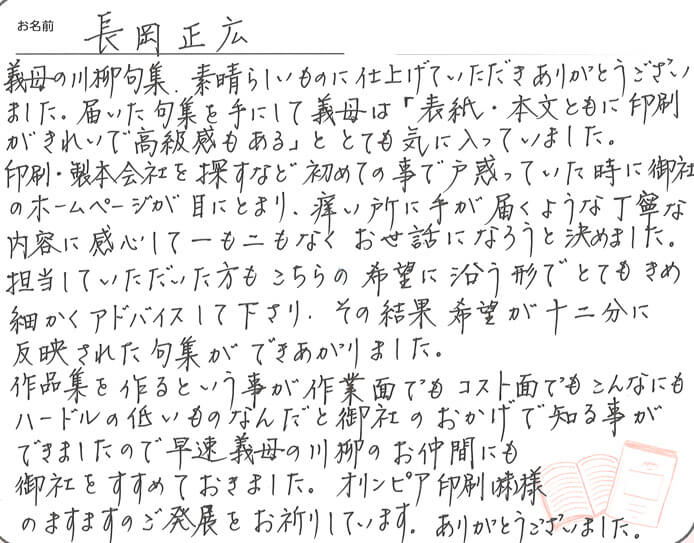 お名前 長岡正広
義母の川柳句集、素晴らしいものに仕上げていただきありがとうござい
ました。届いた句集を手にして義母は「表紙・本文ともに印刷
がきれいで高級感もある」ととても気に入っていました。
印刷・製本会社を探すなど初めての事で戸惑っていた時に御社
のホームページが目にとまり、痒い所に手が届くような丁寧な
内容に感心して一も二もなくお世話になろうと決めました。
担当していただいた方もこちらの希望に沿う形でとてもきめ
細かくアドバイスして下さり、その結果希望が十二分に
反映された句集ができあがりました。
作品集を作るという事が作業面でもコスト面でもこんなにも
ハードルの低いものなんだと御社のおかげで知る事が
できましたので早速義母の川柳のお仲間にも
御社をすすめておきました。オリンピア印刷㈱様
のますますのご発展をお祈りしています。ありがとうございました。